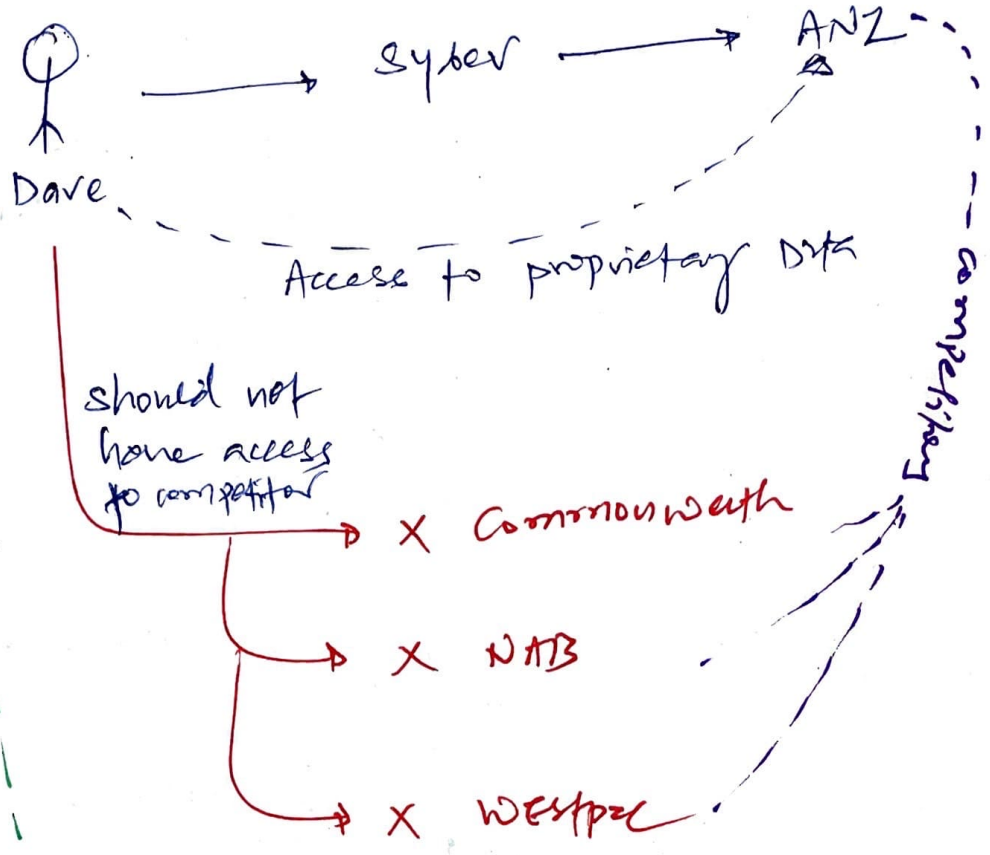 Syber
ANZ
Dave
Access to proprietary Data
competitory
should not
have access
to competitor
X Commonwealth
X NAB
X Westpac